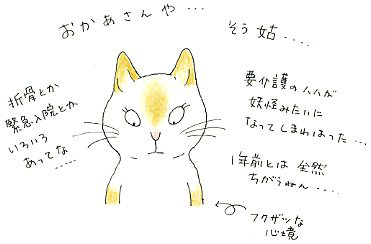 おかあさんや…
そう姑….
折骨とか
緊急入院とか
いろいろ
あってな
…..
要介護の人が
妖怪みたいに
なってしまわはった…
1年前とは全然
ちがうねん….
フクザツな
心境